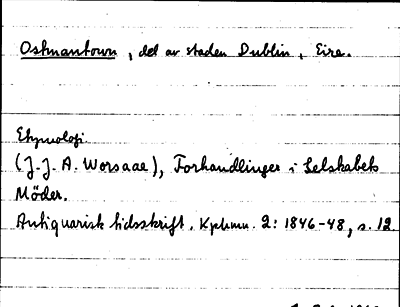 Ostmantown, del av staden Dublin, Eire.
Etymologi.
(J. J. A. Worsaae), Forhandlinger i Selskabets
Möder.
Antiquarisk tidsskrift. Kphmn. 2: 1846-48, s. 12.